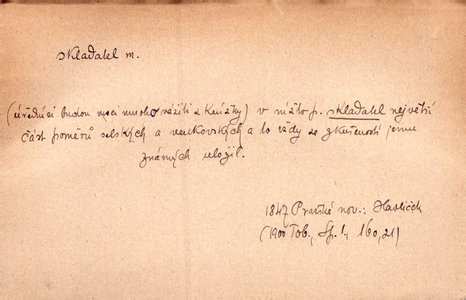 skladatel m.
(úředníci budou moci mnoho vážiti z knížky) v nížto p. skladatel největší
část poměrů selských a venkovských a to vždy ze zkušenosti jemu
známých uložil.
1847 Pražské nov.: Havlíček
(1900 Tob., Sp. I, 160,21)